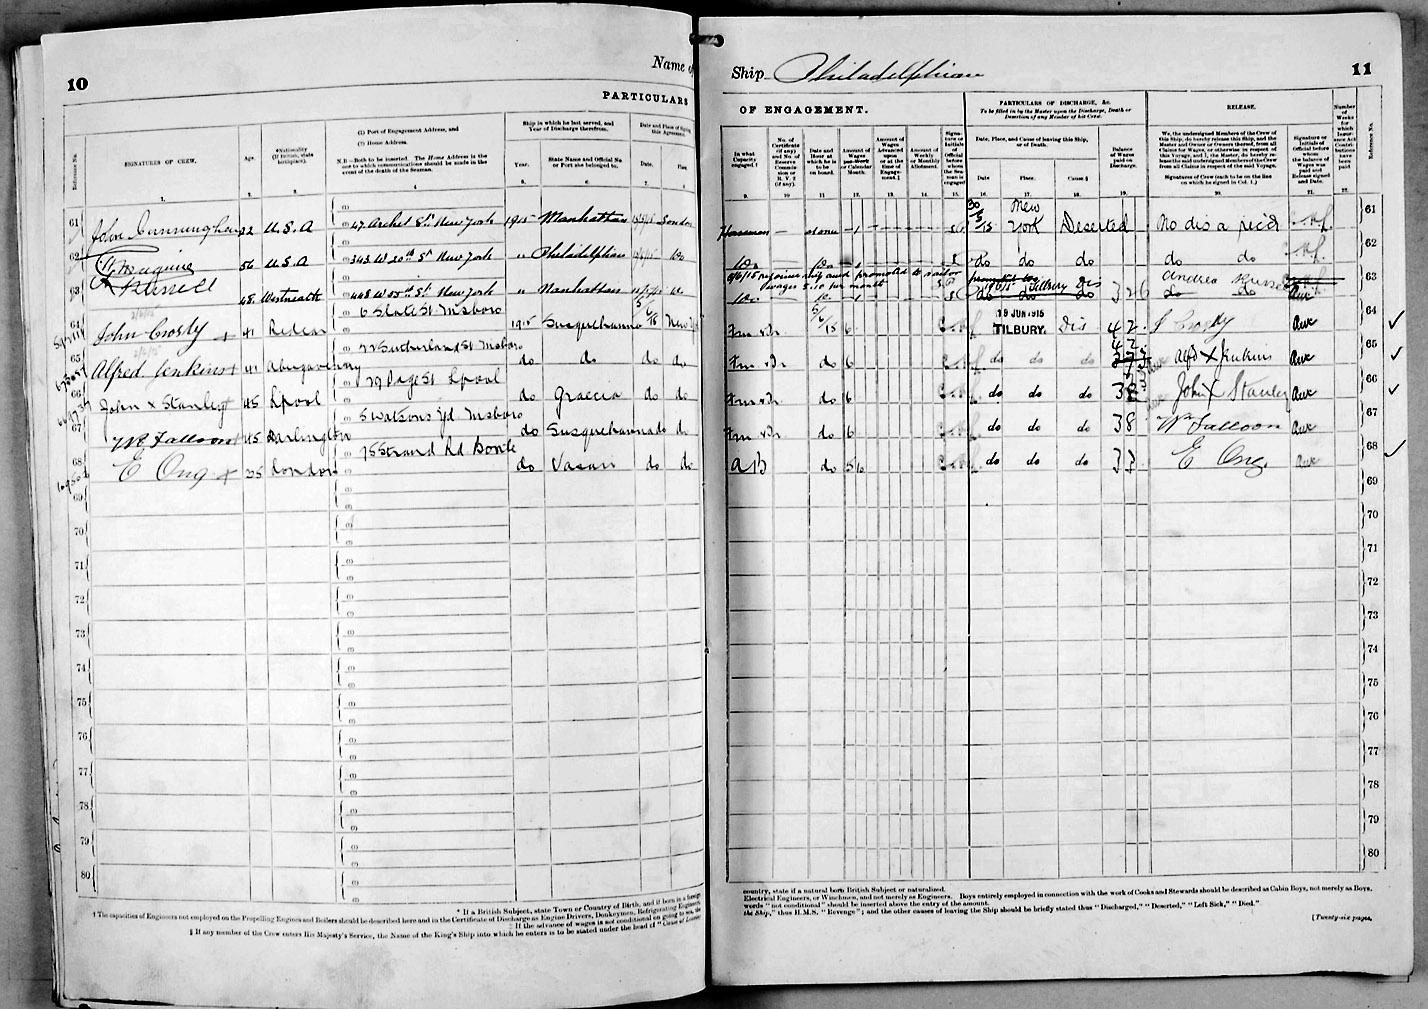 10
Name of
PARTICULARS
Reference No.
SIGNATURES OF CREW.
Age.
*Nationality
(If British, state
birthplace).
(1) Port of Engagement Address, and
(2) Home Address.
N.B.—Both to be inserted. The Home Address is the
one to which communications should be made in the
event of the death of the Seaman.
Ship in which he last served, and
Year of Discharge therefrom.
Year.
State Name and Official No.
or Port she belonged to.
Date and Place of Signing
this Agreement.
Date.
Place.
1. 2. 3. 4 5. 6. 7. 8
61 John Cunningham 22 U.S.A 47 Archer St. New York 1915 Manhattan London
62 Maguire 56 U.S.A 343 W 20th St New York " Philadelphian do
63 48 Westmeath 448 W 55th St. New York " Manhattan
64 John Crosby + 41 Redcar 6 State St Msboro 1915 Susquehanna 5/6/15 New York
65 Alfred Jenkins + 41 Abergavenny 77 Sutherland St Msboro do do do do
66 John x Stanley 45 Lpool 79 Page St Lpool do Graccia do do
67 W Falloon + 45 Darlington 5 Watsons Yd Msboro do Susquehanna do do
68 E Ong + 25 London 75 Strand Rd Bootle do Vasari do do
69
70
71
72
73
74
75
76
77
78
79
80
* If a British Subject, state Town or Country of Birth, and if born in a foreign
† The capacities of Engineers not employed on the Propelling Engines and Boilers should be described here and in the Certificate of Discharge as Engine Drivers, Donkeymen, Refrigerating Engineers,
‡ If the advance of wages is not conditional on going to sea, the
§ If any member of the Crew enters His Majesty's Service, the Name of the King's Ship into which he enters is to be stated under the head of "Cause of Leaving
Ship Philadelphian
11
OF ENGAGEMENT.
PARTICULARS OF DISCHARGE, &c.
To be filled in by the Master upon the Discharge, Death or
Desertion of any Member of his Crew.
RELEASE.
In what
Capacity
engaged.†
No. of
Certificate
(if any)
and No. of
Reserve
Commission
or
R.V. 2
(if any).
Date and
Hour at
which he is
to be
on board.
Amount of
Wages
per Week or
Calendar
Month.
Amount of
Wages
Advanced
upon
or at the
time of
Engagement.‡
Amount of
Weekly
or Monthly
Allotment.
Signature
or
Initials of
Official
before
whom
the Seaman
is
engaged
Date, Place, and Cause of leaving this Ship,
or of Death.
Date
Place.
Cause §
Balance
of Wages
paid on
Discharge.
We, the undersigned Members of the Crew of
this Ship, do hereby release this Ship, and the
Master and Owner or Owners thereof, from all
Claims for Wages, or otherwise in respect of
this Voyage, and I, the Master, do hereby release
the undersigned Members of the Crew
from all Claims in respect of the said Voyage.
Signatures of Crew (each to be on the line
on which he signed in Col. 1.)
Signature or
Initials of
Official before
whom
the balance of
Wages was
paid and
Release signed
and Date.
Number
of
Weeks
for
which
Insurance
and
Contributions
have
been
paid
Reference No.
9. 10 11. 12. 13. 14. 15. 16. 17. 18. 19. 20. 21. 22.
Horseman 30/5/15 New York Deserted No dis a rec'd 61
do do do do do do do 62
9/6/15 rejoins ship and promoted to sailor
wages 5.10 per month
Tilbury Dis 63
Fm & Tr 5/6/15 6 19 JUN 1915 TILBURY Dis 42 J Crosby 64
Fm & Tr do 6 do do do Alfd X Jenkins 65
Fm & Tr do 6 do do do John X Stanley 66
Fm & Tr do 6 do do do 38 W Falloon 67
AB do 5/10 do do do 33 E Ong. 68
69
70
71
72
73
74
75
76
77
78
79
80
country, state if a natural born British Subject or naturalized.
Electrical Engineers, or Winchmen, and not merely as Engineers. Boys entirely employed in connection with the work of Cooks and Stewards should be described as Cabin Boys, not merely as Boys.
words "not conditional" should be inserted above the entry of the amount.
the Ship," thus H.M.S. "Revenge"; and the other causes of leaving the Ship should be briefly stated thus "Discharged," "Deserted," "Left Sick," "Died."
[Twenty-six pages.